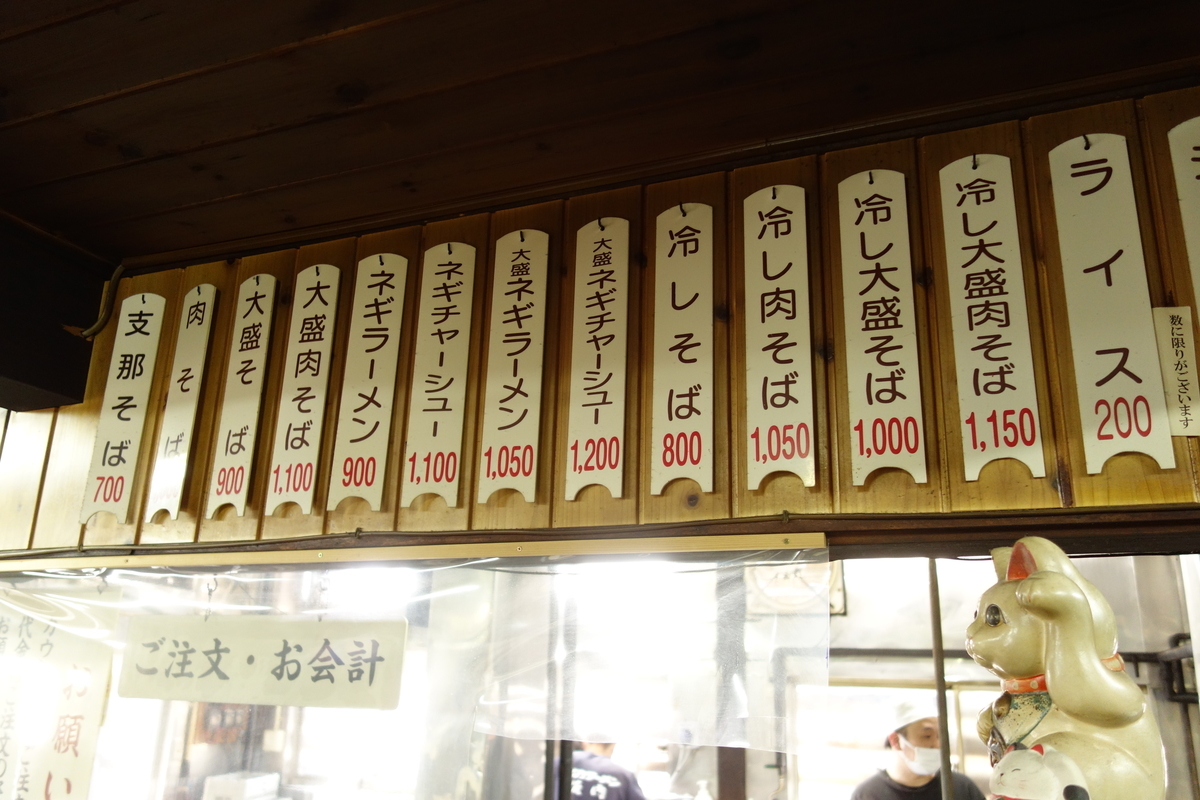 支那そば
700
肉そば
大盛そば
900
大盛肉そば
1,100
ネギラーメン
900
ネギチャーシュー
1,100
大盛ネギラーメン
1,050
大盛ネギチャーシュー
1,200
冷しそば
800
冷し肉そば
1,050
冷し大盛そば
1,000
冷し大盛肉そば
1,150
ライス
200
数に限りがございます
ご注文・お会計
お願い